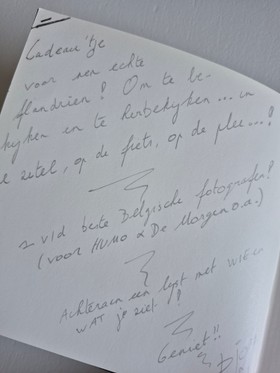 Cadeau'tje
voor een echte
flandrien! Om te be-
kijken en te herbekijken... in
zetel, op de fiets, op de plee...!
v/d beste Belgische fotografen!
(voor HUMO & De Morgen o.a.)
Achteraan een lijst met WIE en
WAT je ziet!!
Geniet!!